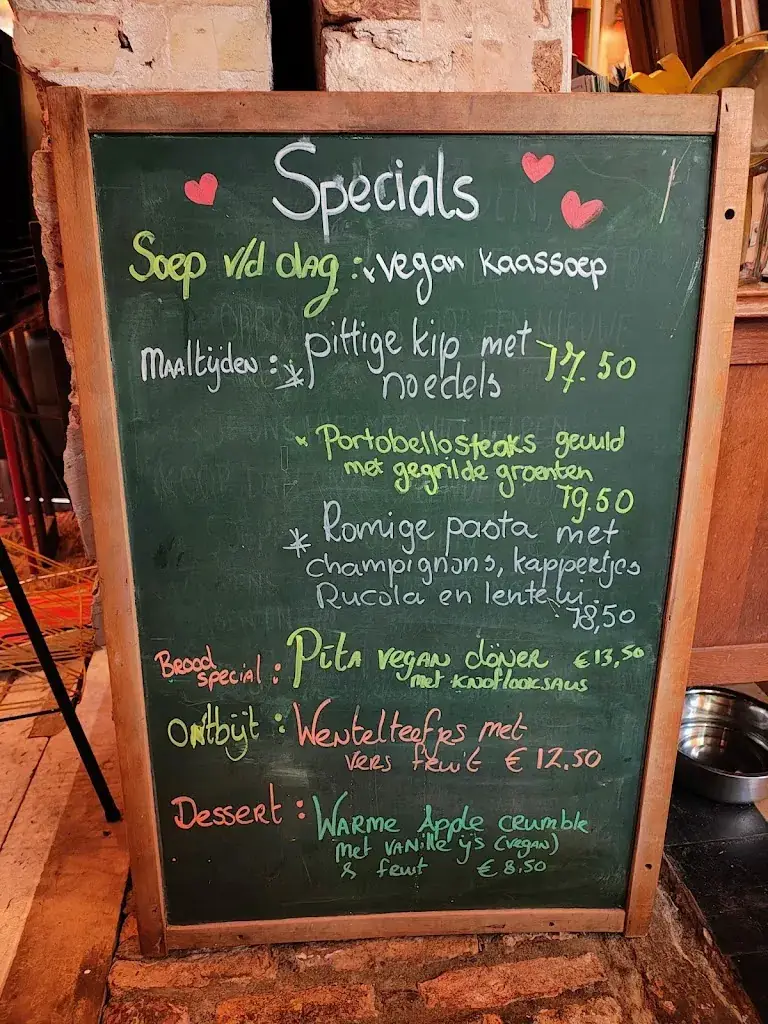 Specials
Soep v/d dag : vegan kaassoep
Maaltijden : * pittige kip met 17.50
noedels
* Portobellosteaks gevuld
met gegrilde groenten
19.50
* Romige pasta met
champignons, kappertjes
Rucola en lente ui.
18,50
Brood special : Pita vegan döner € 13,50
met knoflooksaus
Ontbijt : Wentelteefjes met
vers fruit € 12.50
Dessert : Warme Apple crumble
met vanille ijs (vegan)
& fruit € 8.50